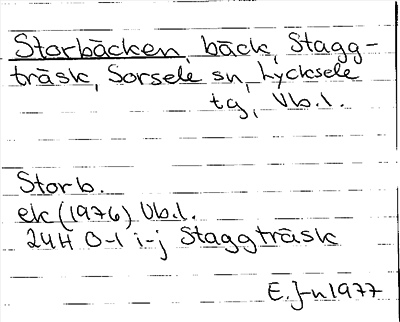 Storbäcken, bäck, Stagg-
träsk, Sorsele sn, Lycksele
tg, Vb.l.
Storb.
ek (1976) Vb.l.
24H 0-1 i-j Staggträsk
E. J-n 1977